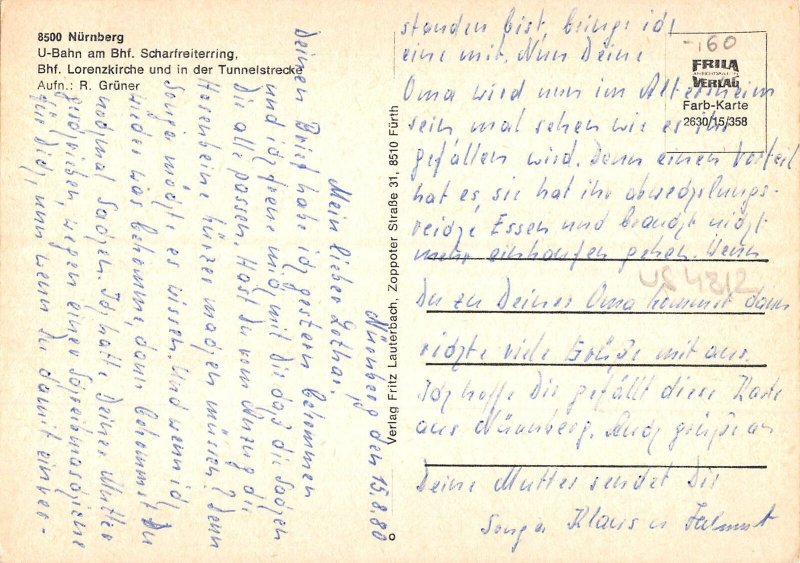 8500 Nürnberg
U-Bahn am Bhf. Scharfreiterring,
Bhf. Lorenzkirche und in der Tunnelstrecke
Aufn.: R. Grüner
Verlag Fritz Lauterbach, Zoppoter Straße 31, 8510 Fürth
-,60
FRILA
VERLAG
Farb-Karte
2630/15/358
Nürnberg den 15.8.80
Mein lieber Lothar.
Deinen Brief habe ich gestern bekommen
und ich freue mich mit Dir daß die Sachen
Dir alle passen. Hast Du vom Anzug die
Hosenbeine kürzer machen müssen? Denn
Sonja möchte es wissen. Und wenn ich
wieder was bekomme, dann bekommst Du
nochmal Sachen. Ich hatte Deiner Mutter
geschrieben, wegen einer Schreibmaschiene
für Dich, nun wenn Du damit einver-
standen bist, bringe ich
eine mit. Nun Deine
Oma wird nun im Altersheim
sein mal sehen wie es ihr
gefallen wird. Denn einen Vorteil
hat es, sie hat ihr abwechslungs-
reiche Essen und braucht nicht
mehr einkaufen gehen. Wenn
Du zu Deiner Oma kommst dann
richte viele Grüße mit aus.
Ich hoffe Dir gefällt diese Karte
aus Nürnberg. Auch grüße an
Deine Mutter sendet Dir
Sonja Klaus u Helmut